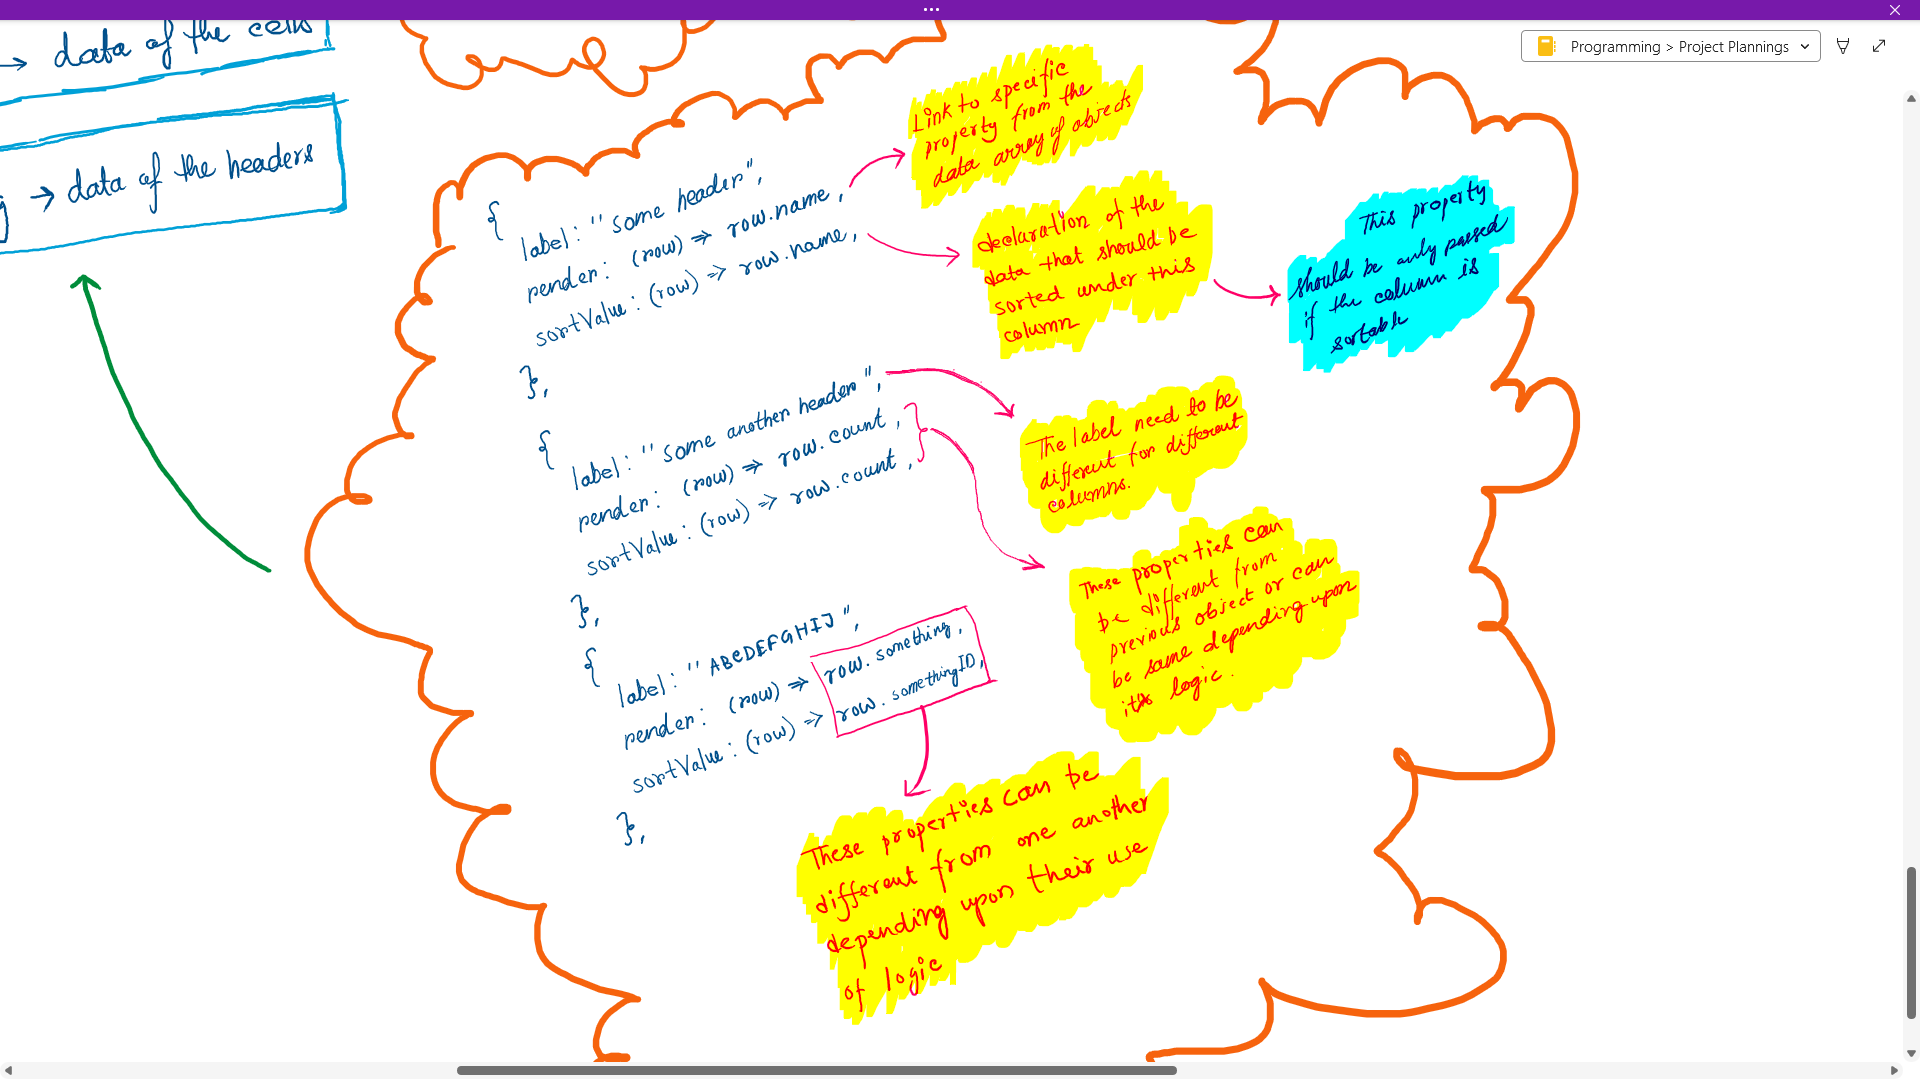 Programming > Project Plannings
→ data of the cells
→ data of the headers
{
label: "some header",
render: (row) => row.name,
sortValue: (row) => row.name,
},
{
label: "some another header",
render: (row) => row.count,
sortValue: (row) => row.count,
},
{
label: "ABCDEFGHIJ",
render: (row) => row.something,
sortValue: (row) => row.somethingID,
},
Link to specific
property from the
data array of objects
declaration of the
data that should be
sorted under this
column
This property
should be only passed
if the column is
sortable
The label need to be
different for different
columns.
These properties can
be different from
previous object or can
be same depending upon
its logic.
These properties can be
different from one another
depending upon their use
of logic